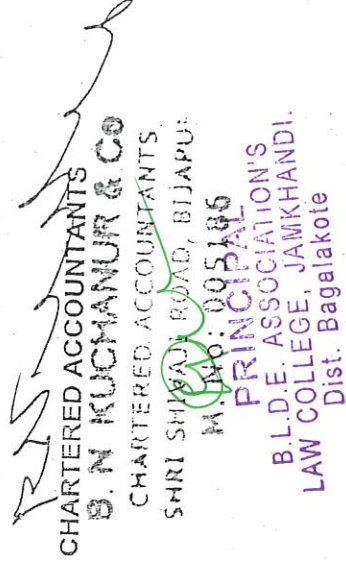 CHARTERED ACCOUNTANTS
B. N KUCHANUR & Co
CHARTERED ACCOUNTANTS
SHRI ROAD, BIJAPU
M. No: 005
PRINCIPAL
B.L.D.E. ASSOCIATION'S
LAW COLLEGE, JAMKHANDI.
Dist. Bagalakote